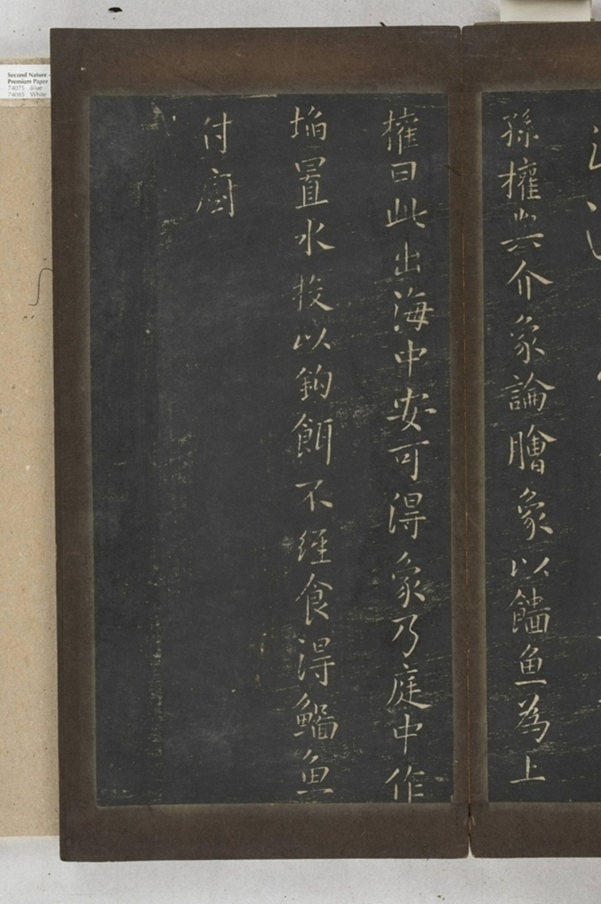 孫權與介象論膾象以鯔魚為上
權曰此出海中安可得象乃庭中作
埳置水投以鈎餌不經食得鯔魚
付廚
Second Nature
Premium Paper
74075 Blue
74085 White